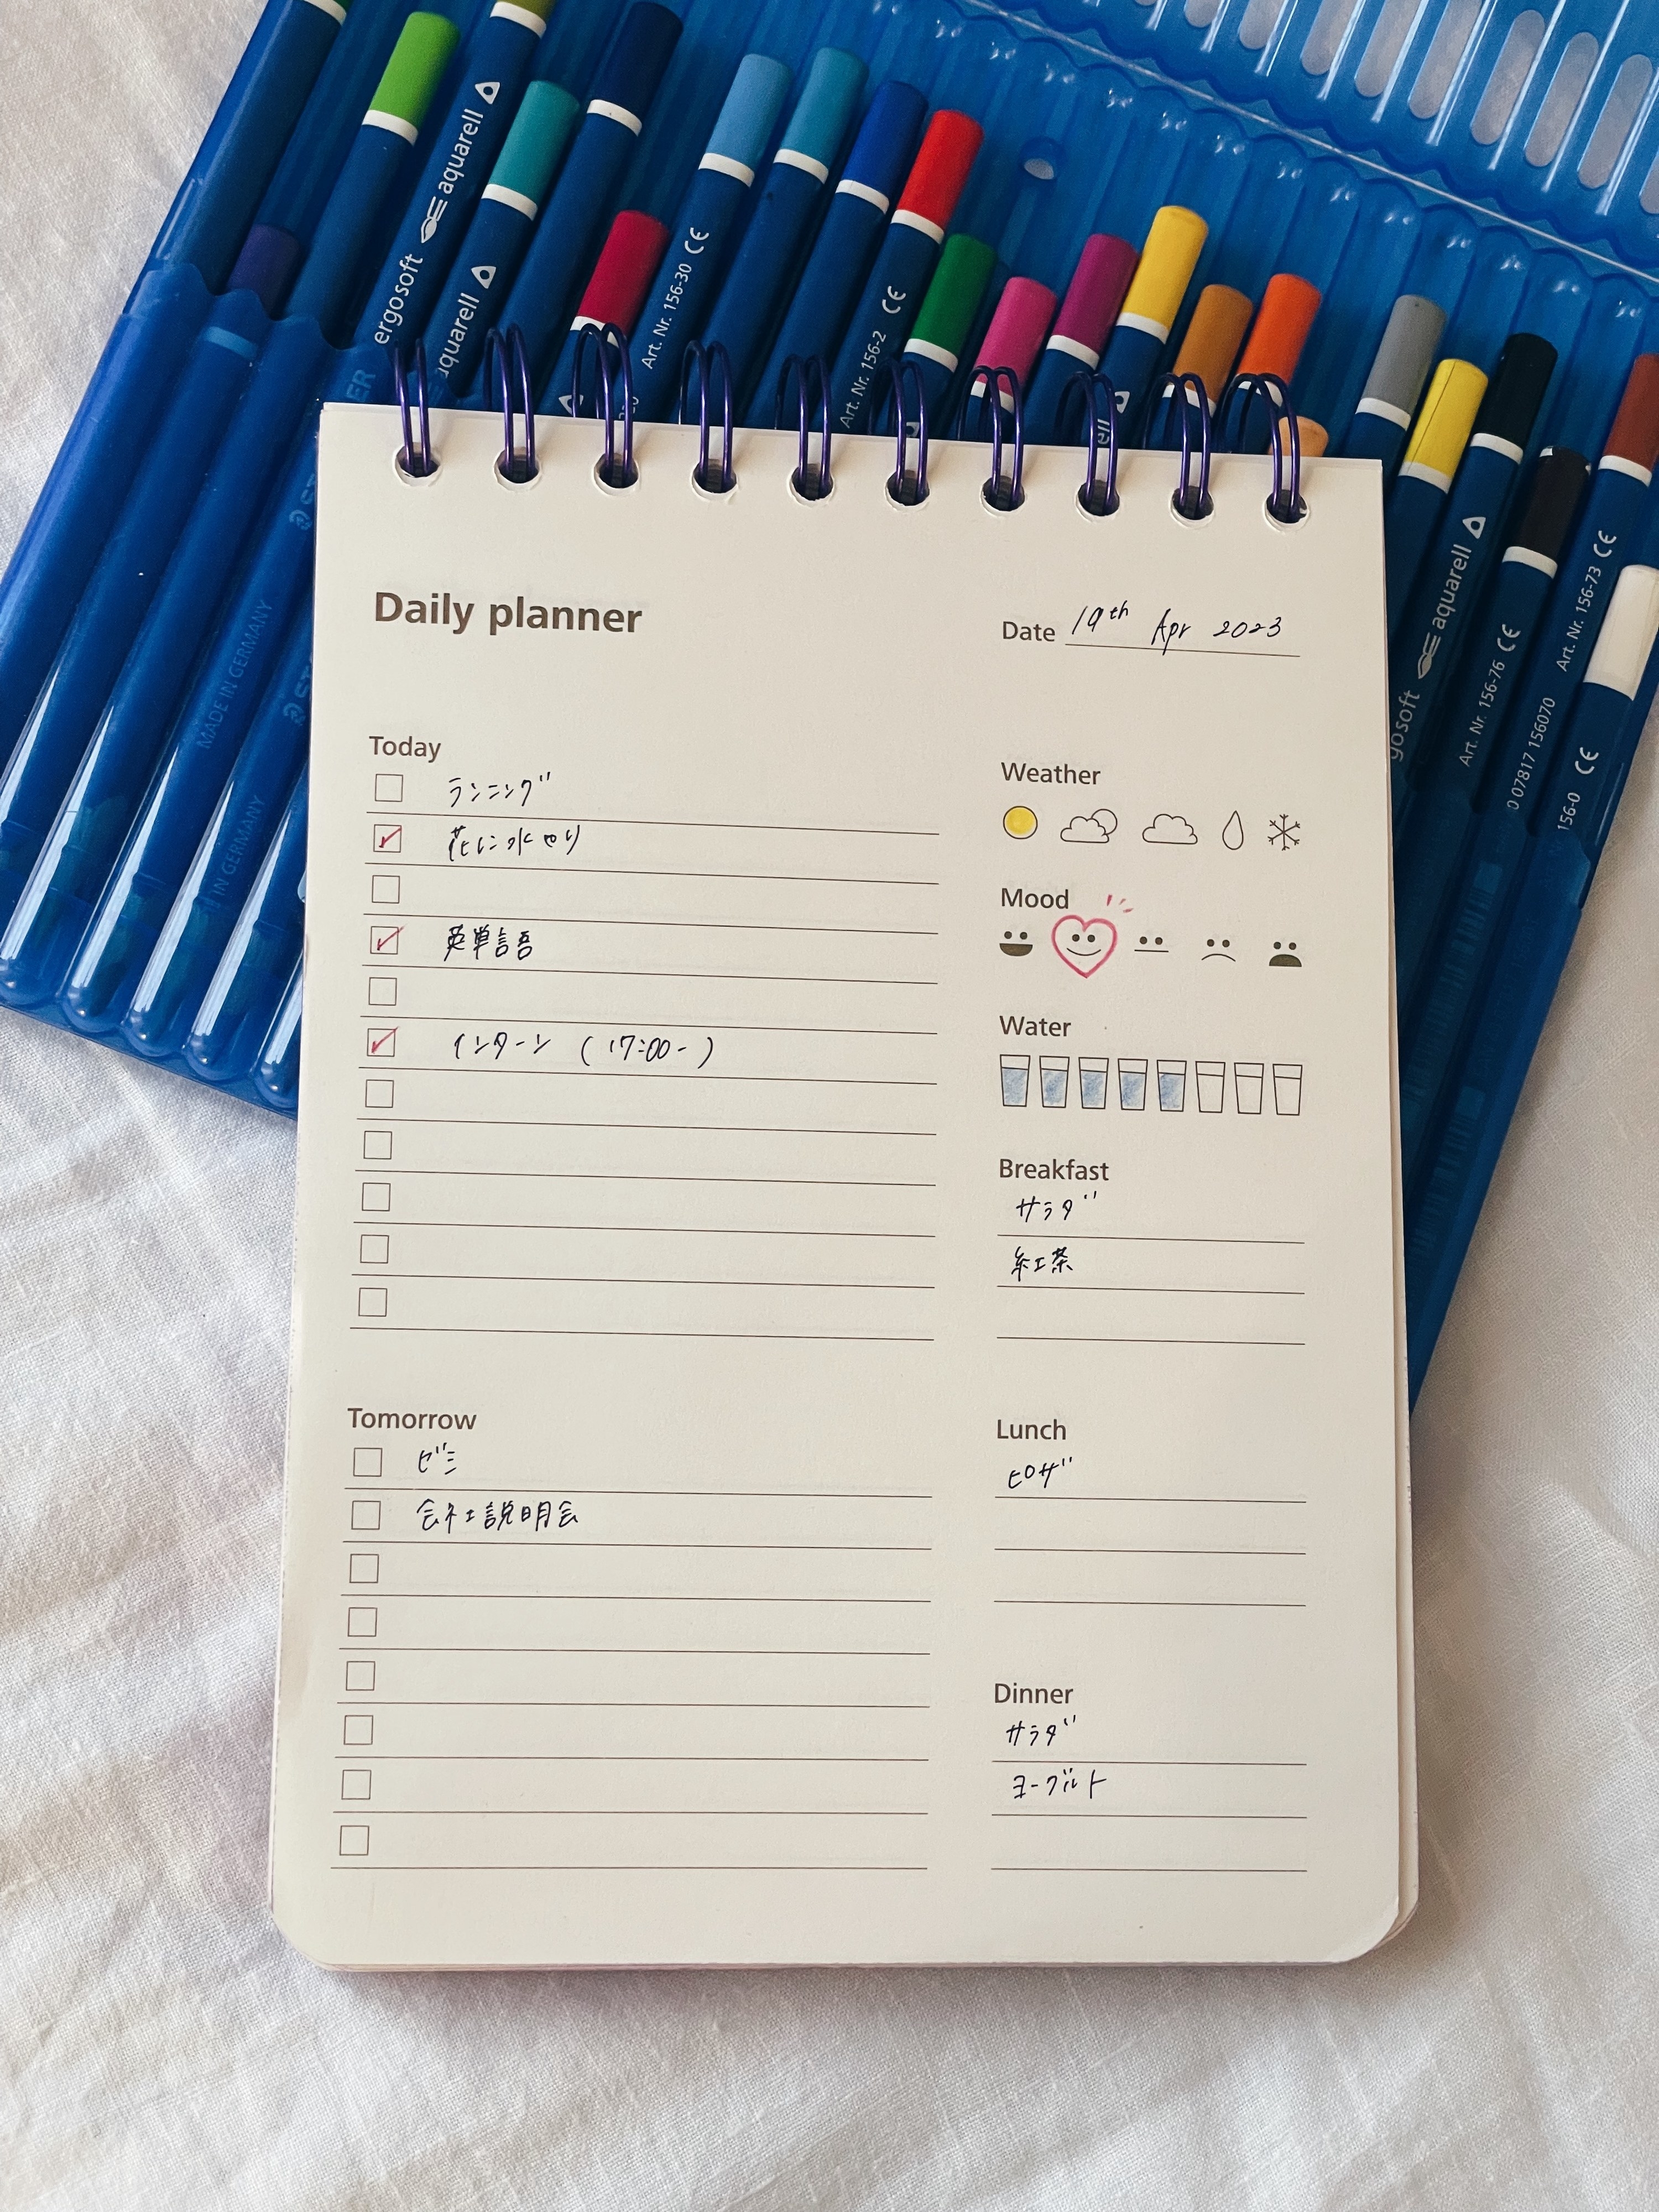 ergosoft aquarell
aquarell
Art. Nr. 156-30 CE
Art. Nr. 156-2 CE
MADE IN GERMANY
IN GERMANY
aquarell
Art. Nr. 156-76 CE
0 07817 156070
Art. Nr. 156-73 CE
156-0 CE
Daily planner
Date 19th Apr 2023
Today
ランニング
花に水やり
英単語
インターン (17:00-)
Tomorrow
ゼミ
会社説明会
Weather
Mood
Water
Breakfast
サラダ
紅茶
Lunch
ピザ
Dinner
サラダ
ヨーグルト